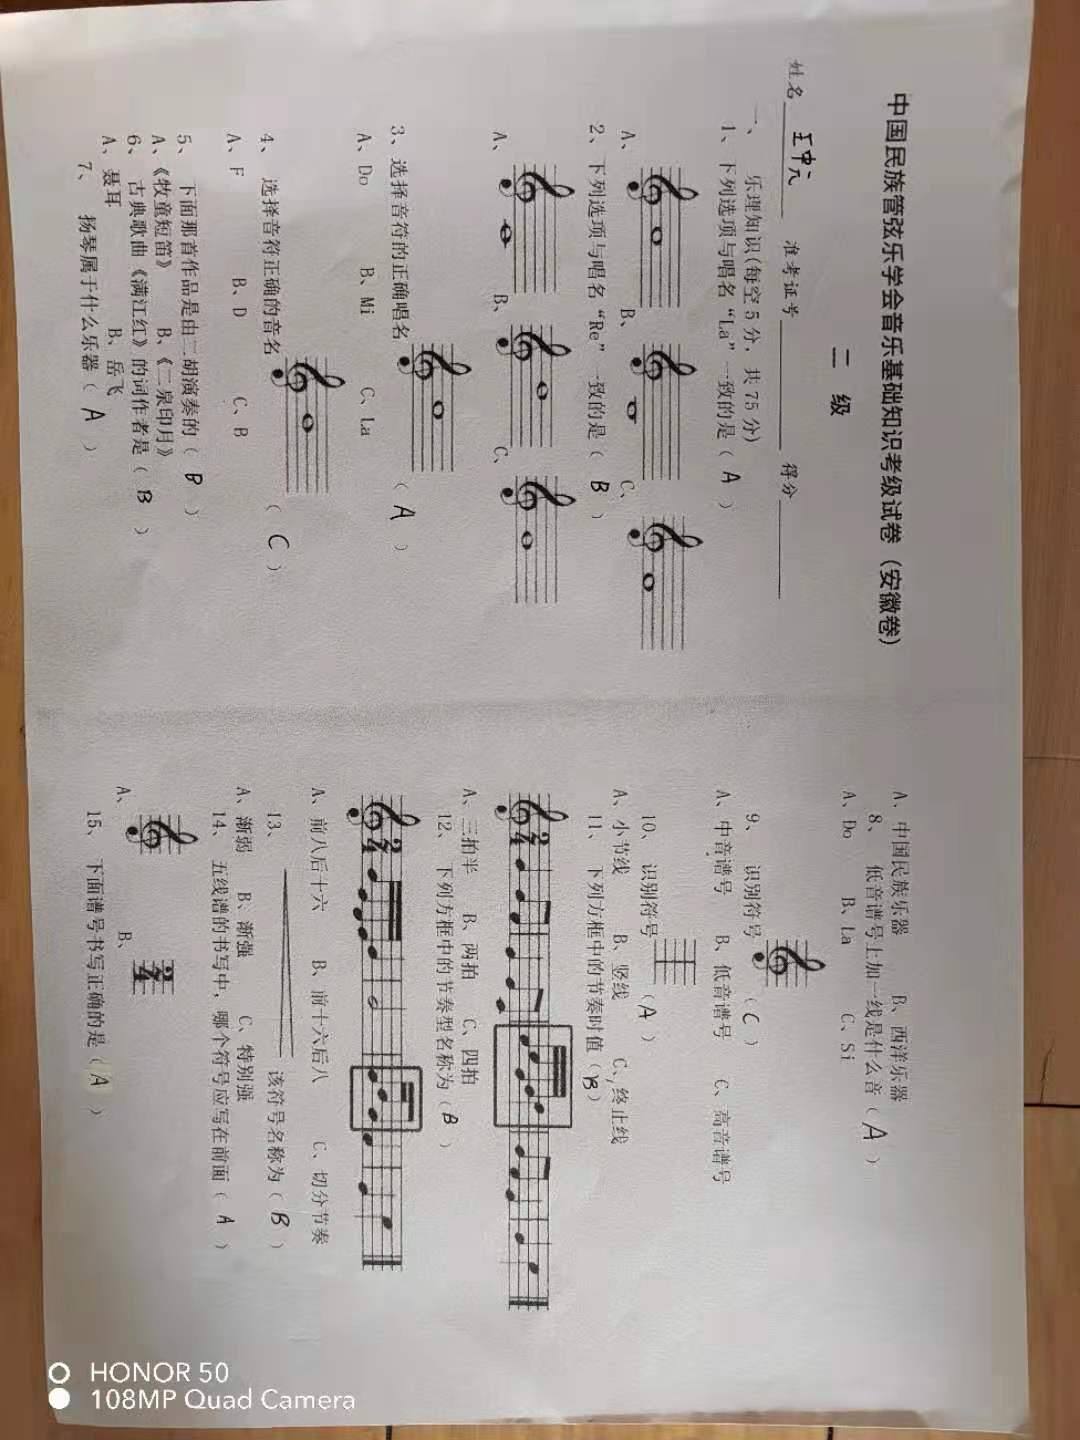 中国民族管弦乐学会音乐基础知识考级试卷（安徽卷）
二 级
姓名 王中元 准考证号 得分
一、 乐理知识(每空5分，共75分)
1、下列选项与唱名“La”一致的是（ A ）
A、 B、 C、
2、下列选项与唱名“Re”一致的是（ B ）
A、 B、 C、
3、选择音符的正确唱名 （ A ）
A、Do B、Mi C、La
4、 选择音符正确的音名 （ C ）
A、F B、D C、B
5、 下面那首作品是由二胡演奏的（ B ）
A、《牧童短笛》 B、《二泉印月》
6、 古典歌曲《满江红》的词作者是（ B ）
A、聂耳 B、岳飞
7、 扬琴属于什么乐器（ A ）
A、中国民族乐器 B、西洋乐器
8、 低音谱号上加一线是什么音（ A ）
A、Do B、La C、Si
9、 识别符号 （ C ）
A、中音谱号 B、低音谱号 C、高音谱号
10、 识别符号 （ A ）
A、小节线 B、竖线 C、终止线
11、 下列方框中的节奏时值（ B ）
2
4
A、三拍半 B、两拍 C、四拍
12、 下列方框中的节奏型名称为（ B ）
2
4
A、前八后十六 B、前十六后八 C、切分节奏
13、 该符号名称为（ B ）
A、渐弱 B、渐强 C、特别强
14、 五线谱的书写中，哪个符号应写在前面（ A ）
A、 B、 2
4
15、 下面谱号书写正确的是（ A ）
HONOR 50
108MP Quad Camera